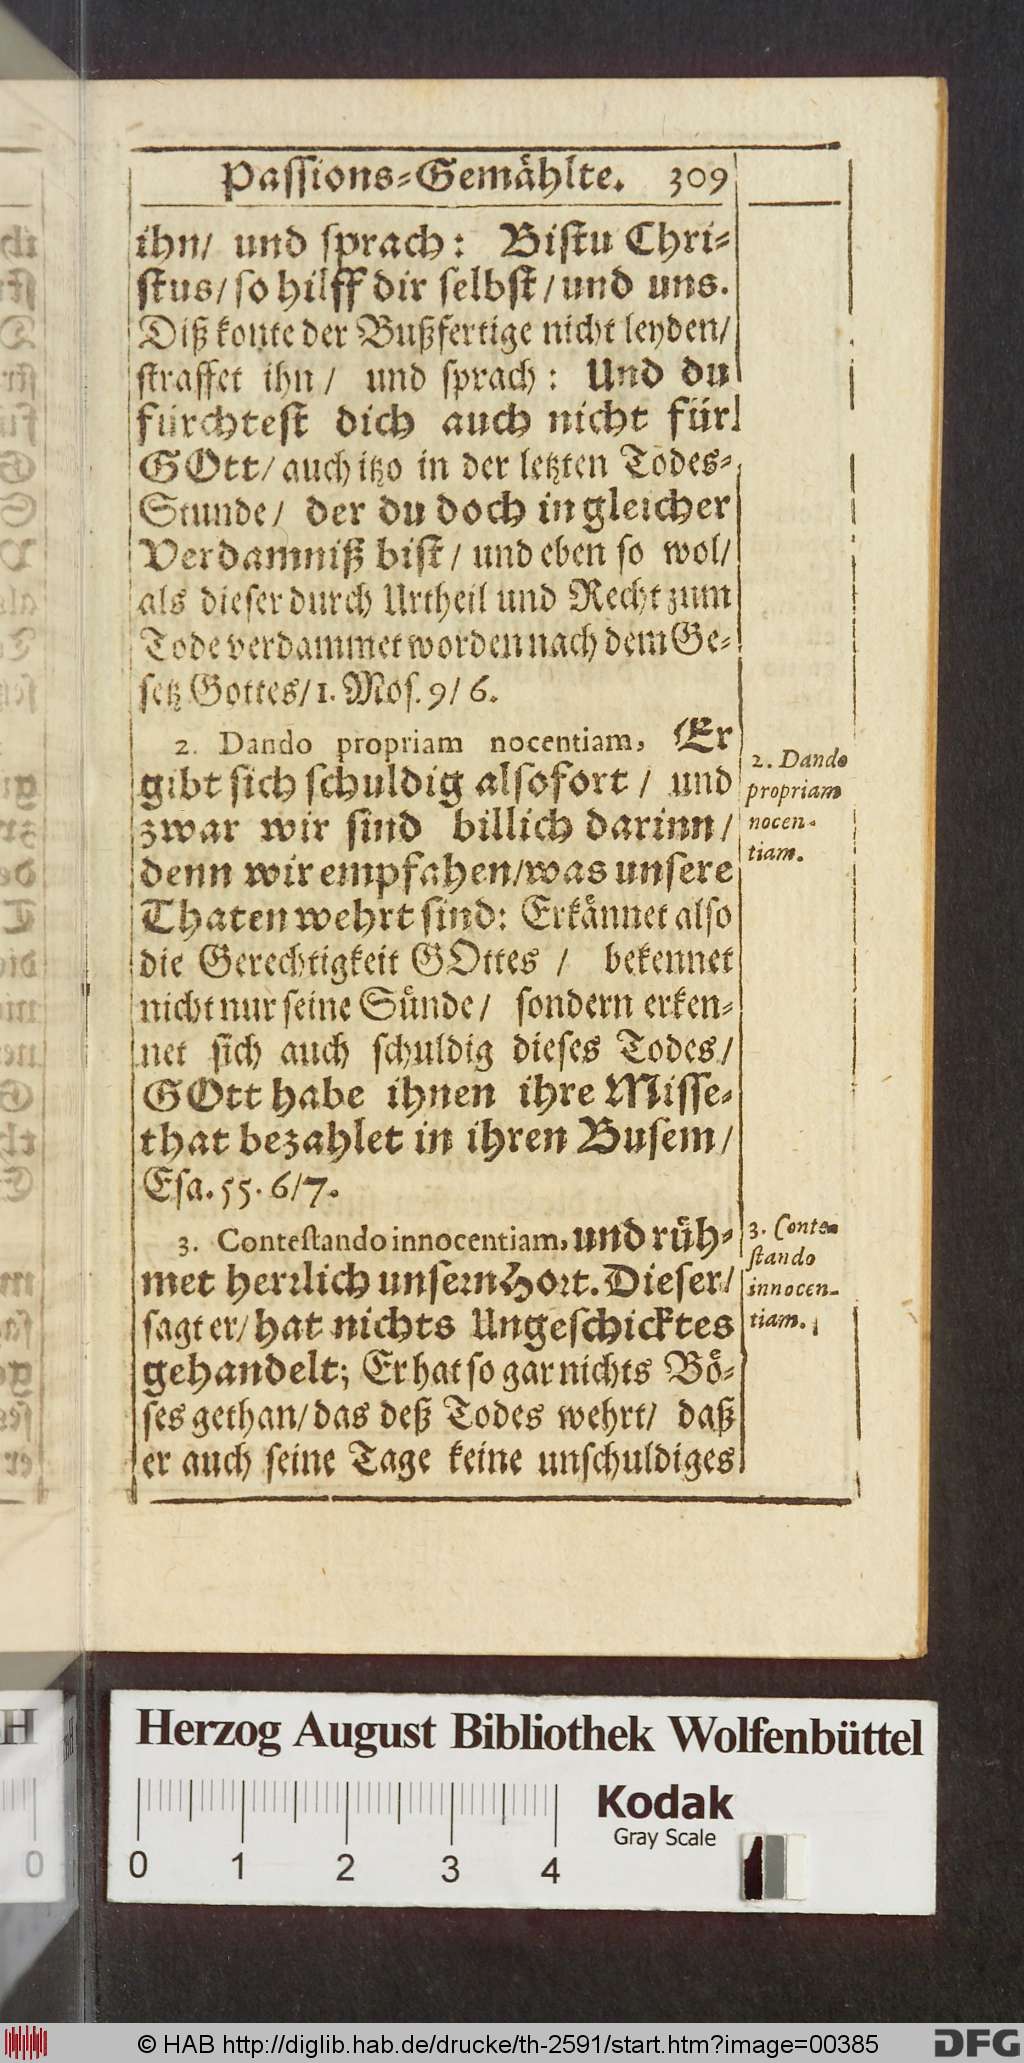 Passions-Gemählte. 309
ihn/ und sprach: Bistu Chri-
stus/ so hilff dir selbst/ und uns.
Diß konte der Bußfertige nicht leyden/
straffet ihn/ und sprach: Und du
fürchtest dich auch nicht für
GOtt/ auch itzo in der letzten Todes-
Stunde/ der du doch in gleicher
Verdamniß bist/ und eben so wol/
als dieser durch Urtheil und Recht zum
Tode verdammet worden nach dem Ge-
setz Gottes/ 1. Mos. 9/ 6.
2. Dando propriam nocentiam, Er
gibt sich schuldig alsofort/ und
zwar wir sind billich darinn/
denn wir empfahen/ was unsere
Thaten wehrt sind: Erkännet also
die Gerechtigkeit GOttes/ bekennet
nicht nur seine Sünde/ sondern erken-
net sich auch schuldig dieses Todes/
GOtt habe ihnen ihre Misse-
that bezahlet in ihren Busem/
Esa. 55. 6/7.
3. Contestando innocentiam, und rüh-
met herrlich unsern Hort. Dieser/
sagt er/ hat nichts Ungeschicktes
gehandelt; Er hat so gar nichts Bö-
ses gethan/ das deß Todes wehrt/ daß
er auch seine Tage keine unschuldiges
2. Dando
propriam
nocen-
tiam.
3. Conte-
stando
innocen-
tiam.
Herzog August Bibliothek Wolfenbüttel
Kodak
Gray Scale
0 1 2 3 4
© HAB http://diglib.hab.de/drucke/th-2591/start.htm?image=00385
DFG